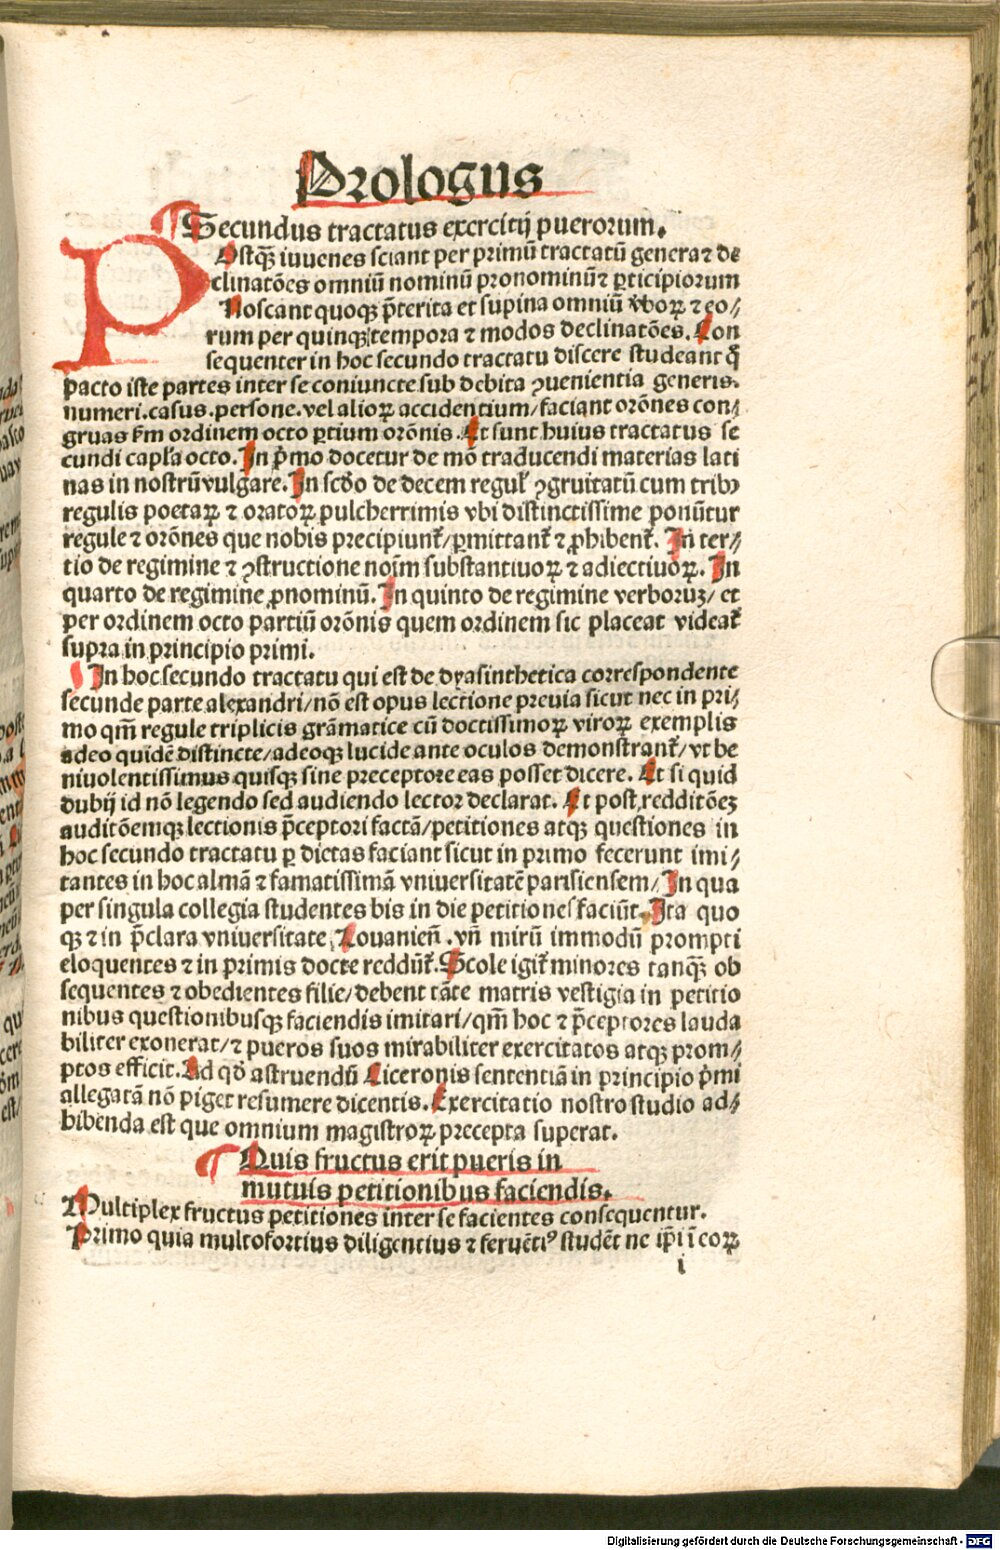 Prologus
¶ Secundus tractatus exercitij puerorum.
POstqꝫ iuuenes sciant per primū tractatū genera ⁊ de
clinatōes omniū nominū pronominū ⁊ ꝑticipiorum
Noscant quoqꝫ p̄terita et supina omniū v̄boꝝ ⁊ eo⸗
rum per quinqꝫ tempora ⁊ modos declinatōes. Con
sequenter in hoc secundo tractatu discere studeant q̄
pacto iste partes inter se coniuncte sub debita ꝯuenientia generis.
numeri. casus. persone. vel alioꝝ accidentium/ faciant orōnes con⸗
gruas ẜm ordinem octo ꝑtium orōnis. Et sunt huius tractatus se
cundi capl'a octo. In p̄mo docetur de mō traducendi materias lati
nas in nostrū vulgare. In scd̄o de decem regul' ꝯgruitatū cum tribꝫ
regulis poetaꝝ ⁊ oratoꝝ pulcherrimis vbi distinctissime ponūtur
regule ⁊ orōnes que nobis precipiunt᷑/ ꝑmittant᷑ ⁊ ꝓhibent᷑. In ter⸗
tio de regimine ⁊ ꝯstructione noīm substantiuoꝝ ⁊ adiectiuoꝝ. In
quarto de regimine ꝓnominū. In quinto de regimine verboruꝫ/ et
per ordinem octo partiū orōnis quem ordinem sic placeat videat᷑
supra in principio primi.
¶ In hoc secundo tractatu qui est de dyasinthetica correspondente
secunde parte alexandri/ nō est opus lectione preuia sicut nec in pri⸗
mo qm̄ regule triplicis grāmatice cū doctissimoꝝ viroꝝ exemplis
adeo quidē distincte/ adeoqꝫ lucide ante oculos demonstrant᷑/ vt be
niuolentissimus quisqꝫ sine preceptore eas posset dicere. Et si quid
dubij id nō legendo sed audiendo lector declarat. Et post redditōeꝫ
auditōemqꝫ lectionis p̄ceptori factā/ petitiones atqꝫ questiones in
hoc secundo tractatu ꝑ dietas faciant sicut in primo fecerunt imi⸗
tantes in hoc almā ⁊ famatissimā vniuersitatē parisiensem/ In qua
per singula collegia studentes bis in die petitiones faciūt. Ita quo
qꝫ ⁊ in p̄clara vniuersitate Louanień. vn̄ mirū immodū prompti
eloquentes ⁊ in primis docte reddūt᷑. Scole igit᷑ minores tanqꝫ̄ ob
sequentes ⁊ obedientes filie/ debent tāte matris vestigia in petitio
nibus questionibusqꝫ faciendis imitari/ qm̄ hoc ⁊ p̄ceptores lauda
biliter exonerat/ ⁊ pueros suos mirabiliter exercitatos atqꝫ prom⸗
ptos efficit. Ad qd̄ astruendū Ciceronis sententiā in principio p̄mi
allegatā nō piget resumere dicentis. Exercitatio nostro studio ad⸗
hibenda est que omnium magistroꝝ precepta superat.
¶ Quis fructus erit pueris in
mutuis petitionibus faciendis.
Multiplex fructus petitiones inter se facientes consequentur.
Primo quia multofortius diligentius ⁊ feruēti⁹ studēt ne ip̄i ī eoꝝ
i
Digitalisierung gefördert durch die Deutsche Forschungsgemeinschaft - DFG